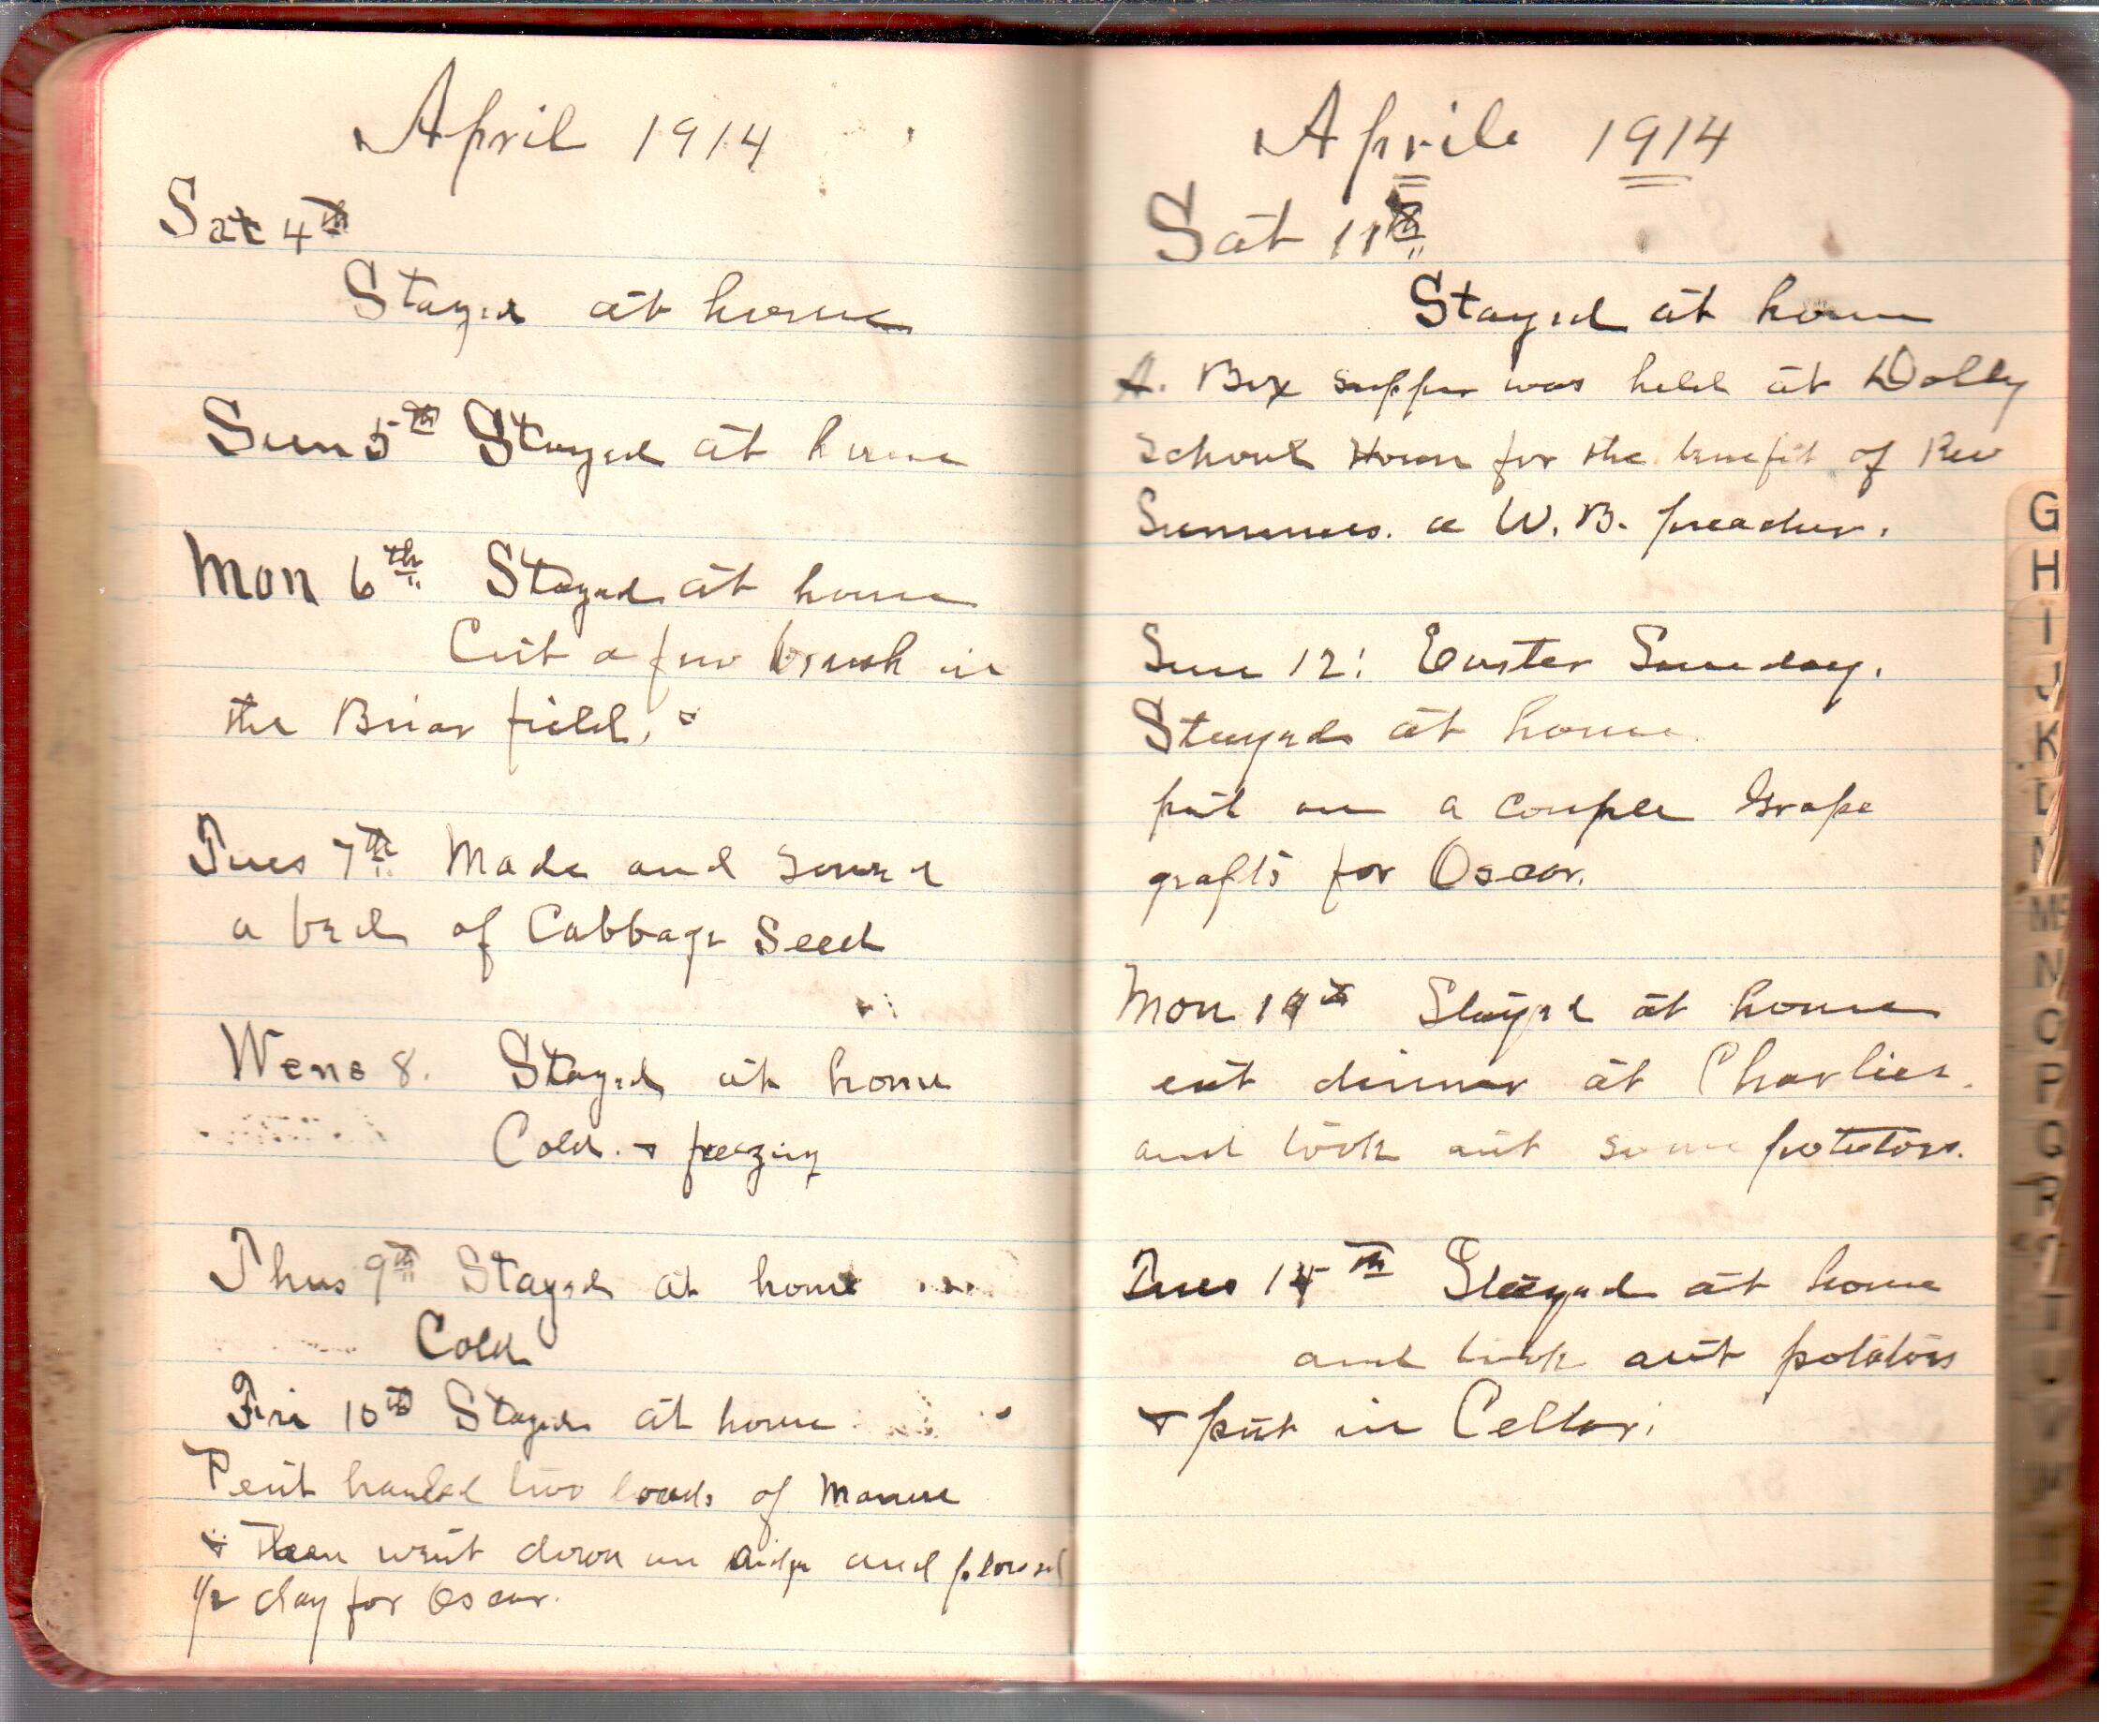 April 1914
Sat 4th
Stayed at home
Sun 5th Stayed at home
Mon 6th Stayed at home
Cut a few brush in
the Briar field.
Tues 7th Made and sowed
a bed of Cabbage Seed
Wens 8. Stayed at home
Cold. + freezing
Thus 9th Stayed at home
Cold
Fri 10th Stayed at home
hauled two loads of Manure
+ Then went down on and plowed
1/2 day for Oscar.
Aprile 1914
Sat 11th
Stayed at home
A. Box supper was held at Dolly
School House for the benefit of Rev
Summers. a W. B. preacher.
Sun 12: Easter Sunday.
Stayed at home
put on a couple Grape
grafts for Oscar.
Mon 1 Stayed at home
eat dinner at Charlies.
and took out some potatoes.
Tues 14th Stayed at home
and took out potatois
+ put in Cellar.
G
H
I
J
K
L
M
Mc
N
O
P
Q
R
T
U
V
W